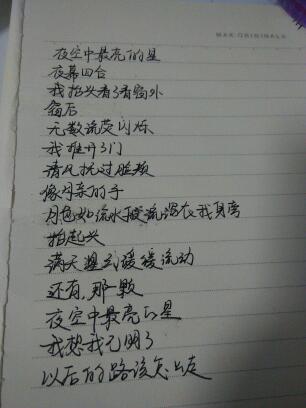 MAX ORIGINALS
夜空中最亮的星
夜幕四合
我抬头看了看窗外
窗后
无数流萤闪烁
我推开了门
清风抚过脸颊
像母亲的手
月色如流水般流淌在我身旁
抬起头
满天星河缓缓流动
还有,那颗
夜空中最亮的星
我想我已明了
以后的路该怎么走